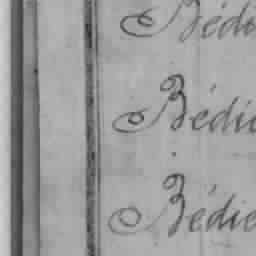 Bédi
Bédie
Bédie